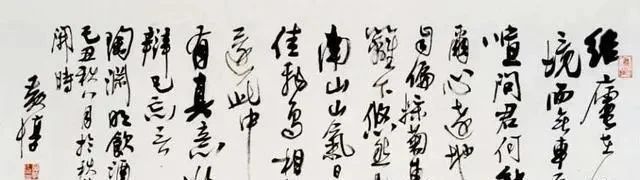 結廬在
境而無車
喧問君何能
爾心遠地
自偏採菊東
籬下悠然見
南山山氣日
佳飛鳥相
還此中
有真意欲
辯已忘言
陶淵明飲酒
己丑秋八月於秋
開時